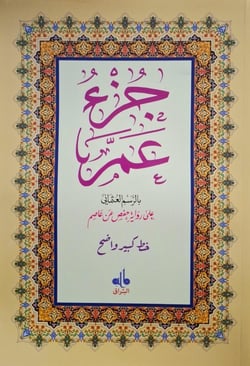 جُزْءُ
عَمَّ
بالرسم العثماني
على رواية حفص عن عاصم
خط كبير واضح
البراق